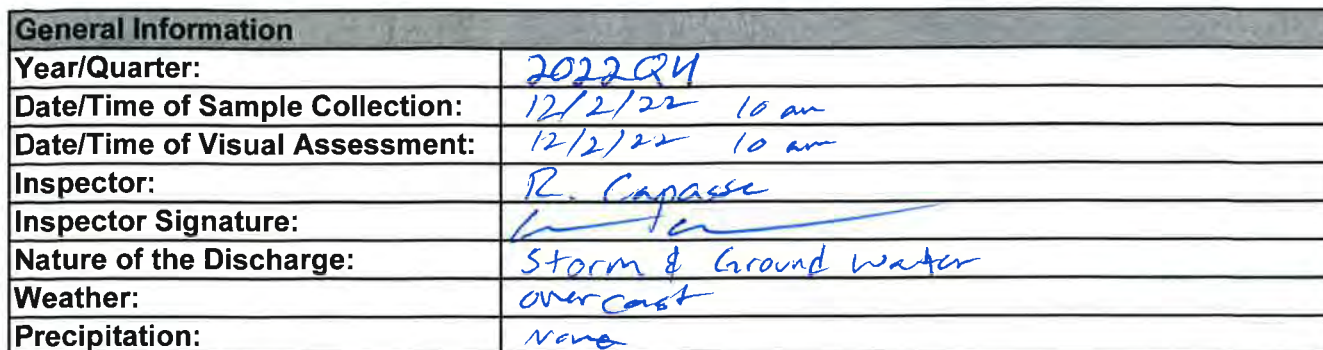 General Information
Year/Quarter: 2022Q4
Date/Time of Sample Collection: 12/2/22 10 am
Date/Time of Visual Assessment: 12/2/22 10 am
Inspector: R. Capasse
Inspector Signature:
Nature of the Discharge: Storm & Ground Water
Weather: overcast
Precipitation: None